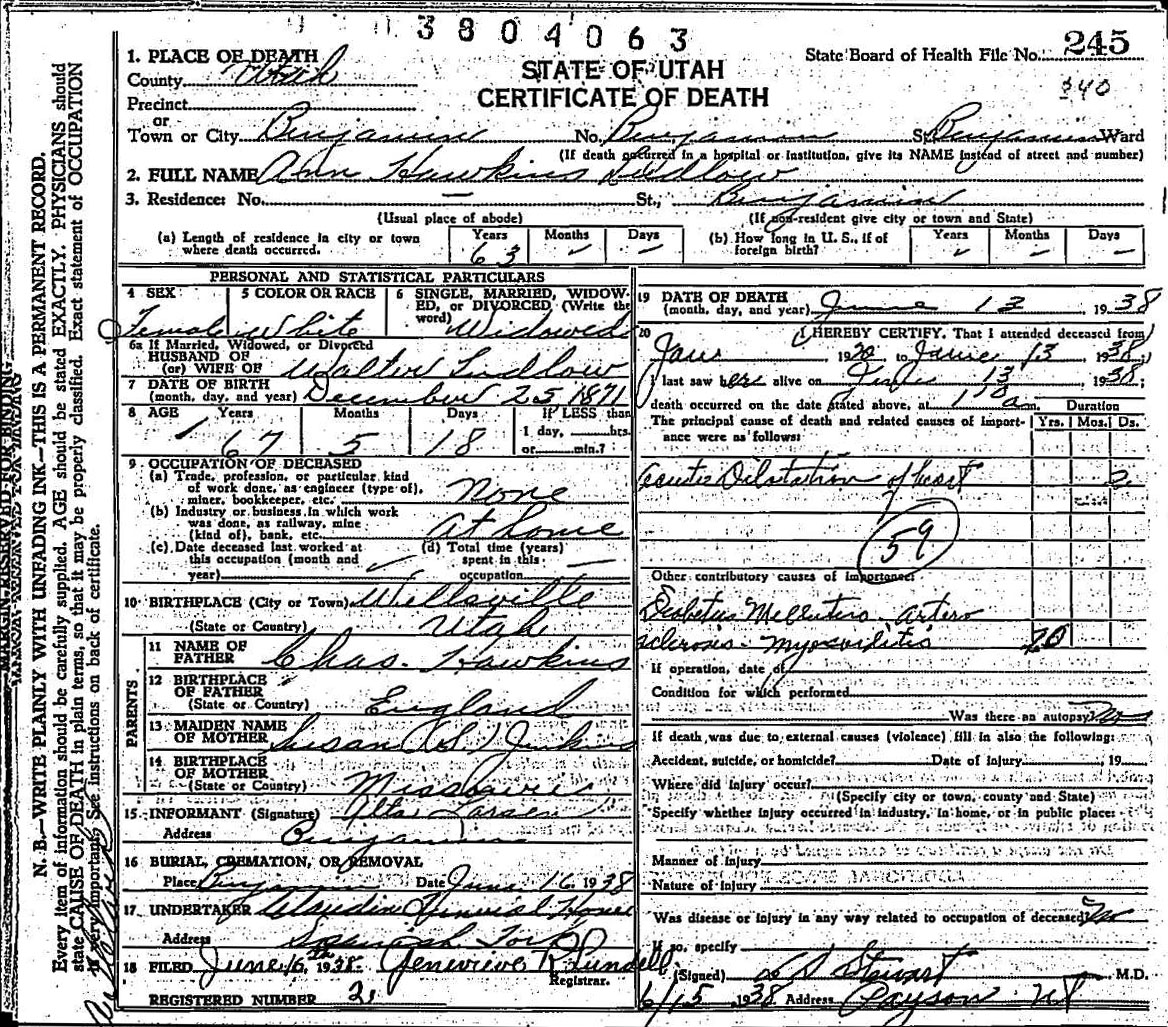 3804063
State Board of Health File No. 245
$40
STATE OF UTAH
CERTIFICATE OF DEATH
1. PLACE OF DEATH
County Utah
Precinct
or
Town or City Benjamine No. Benjamon St. Benjamin Ward
(If death occurred in a hospital or institution, give its NAME instead of street and number)
2. FULL NAME Ann Hawkins Ludlow
3. Residence: No. — St., Benjamin
(Usual place of abode) (If non-resident give city or town and State)
(a) Length of residence in city or town where death occurred. Years 63 Months – Days –
(b) How long in U. S., if of foreign birth? Years Months Days
PERSONAL AND STATISTICAL PARTICULARS
4 SEX Female
5 COLOR OR RACE White
6 SINGLE, MARRIED, WIDOWED, OR DIVORCED. (Write the word) Widowed
6a If Married, Widowed, or Divorced
HUSBAND OF
(or) WIFE OF Walter Ludlow
7 DATE OF BIRTH
(month, day, and year) December 25 1871
8 AGE Years 67 Months 5 Days 18 If LESS than
1 day, hrs.
or min.?
9 OCCUPATION OF DECEASED
(a) Trade, profession, or particular kind
of work done, as engineer (type of),
miner, bookkeeper, etc. None
(b) Industry or business in which work
was done, as railway, mine
(kind of), bank, etc. At home
(c) Date deceased last worked at
this occupation (month and
year)
(d) Total time (years)
spent in this
occupation —
10 BIRTHPLACE (City or Town) Wellsville
(State or Country) Utah
PARENTS
11 NAME OF
FATHER Chas. Hawkins
12 BIRTHPLACE
OF FATHER
(State or Country) England
13 MAIDEN NAME
OF MOTHER Susan Jenkins
14 BIRTHPLACE
OF MOTHER
(State or Country) Missourie
15 INFORMANT (Signature) Alta Larsen
Address Benjamin
16 BURIAL, CREMATION, OR REMOVAL
Place Benjamin Date June 16 1938
17 UNDERTAKER Claudin Funeral Home
Address Spanish Fork
18 FILED June 16th 1938 Genevieve R Lundell
Registrar.
REGISTERED NUMBER 21
19 DATE OF DEATH
(month, day, and year) June 13 1938
20 I HEREBY CERTIFY, That I attended deceased from
Jan 1920 to June 13 1938;
I last saw her alive on June 13 1938;
death occurred on the date stated above, at 1 10 a m. Duration
The principal cause of death and related causes of importance were as follows: Yrs. Mos. Ds.
acute Dilatation of heart
59
Other contributory causes of importance:
Diabetus Mellutus Artero
sclerosis - myocarditis 20
If operation, date of
Condition for which performed
Was there an autopsy No
If death was due to external causes (violence) fill in also the following:
Accident, suicide, or homicide? Date of injury 19
Where did injury occur?
(Specify city or town, county and State)
Specify whether injury occurred in industry, in home, or in public place:
Manner of injury
Nature of injury
Was disease or injury in any way related to occupation of deceased? No
If so, specify
(Signed) Stewart M.D.
6/15 1938 Address Payson Ut
MARGIN RESERVED FOR BINDING
N. B.—WRITE PLAINLY WITH UNFADING INK—THIS IS A PERMANENT RECORD.
Every item of information should be carefully supplied. AGE should be stated EXACTLY. PHYSICIANS should
state CAUSE OF DEATH in plain terms, so that it may be properly classified. Exact statement of OCCUPATION
is very important. See instructions on back of certificate.